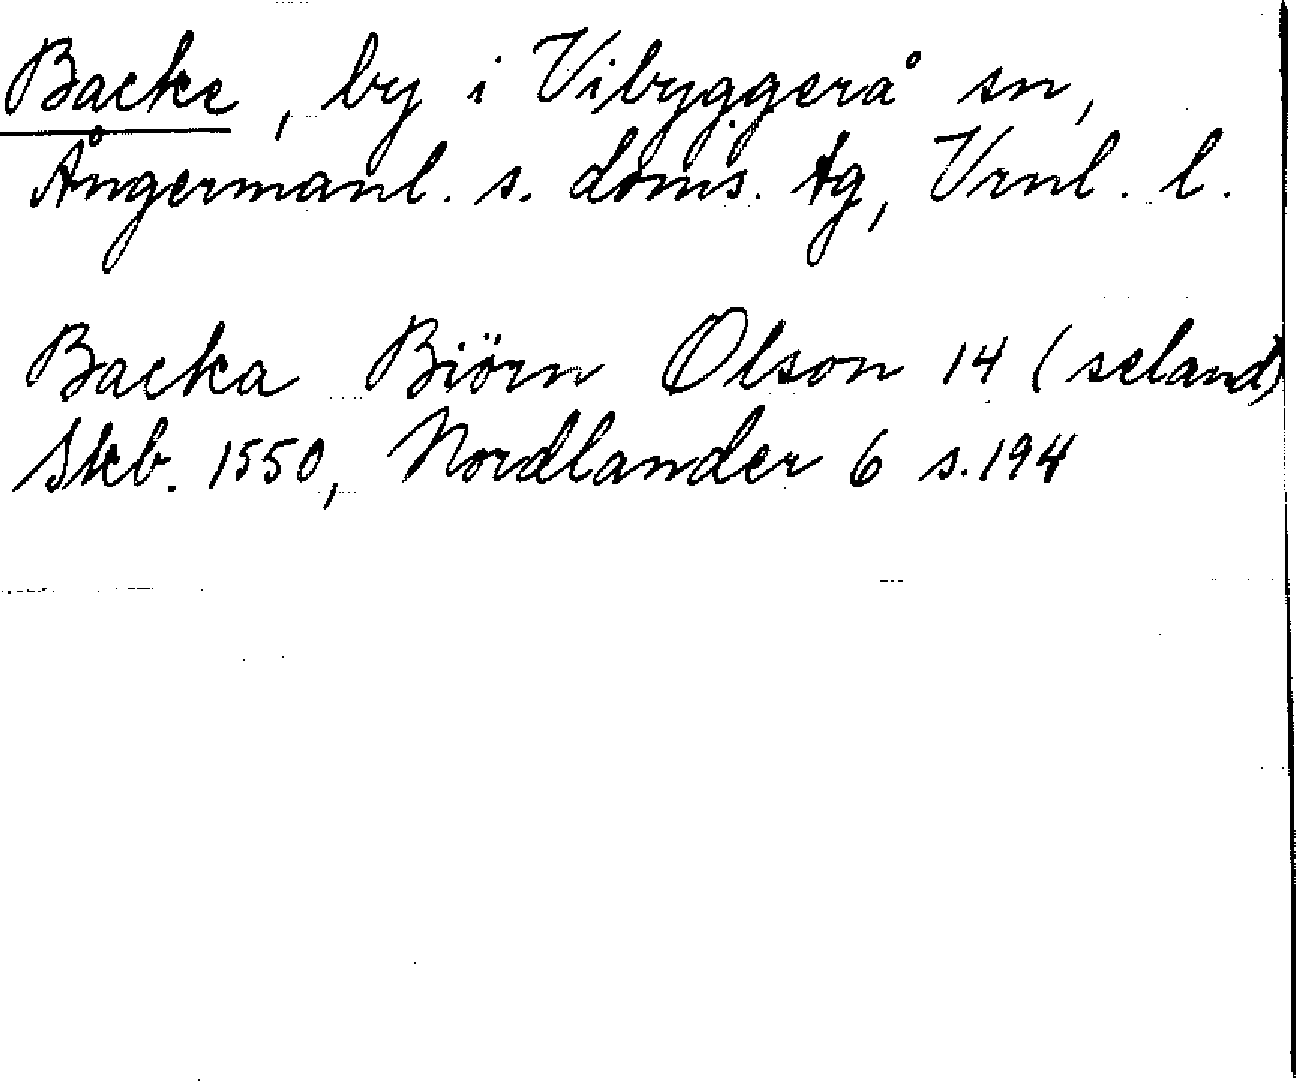 Backe, by i Vibyggerå sn,
Ångermanl. s. doms. tg, Vrnl. l.
Backa Biörn Olson 14 (seland)
Skb. 1550, Nordlander 6 s. 194